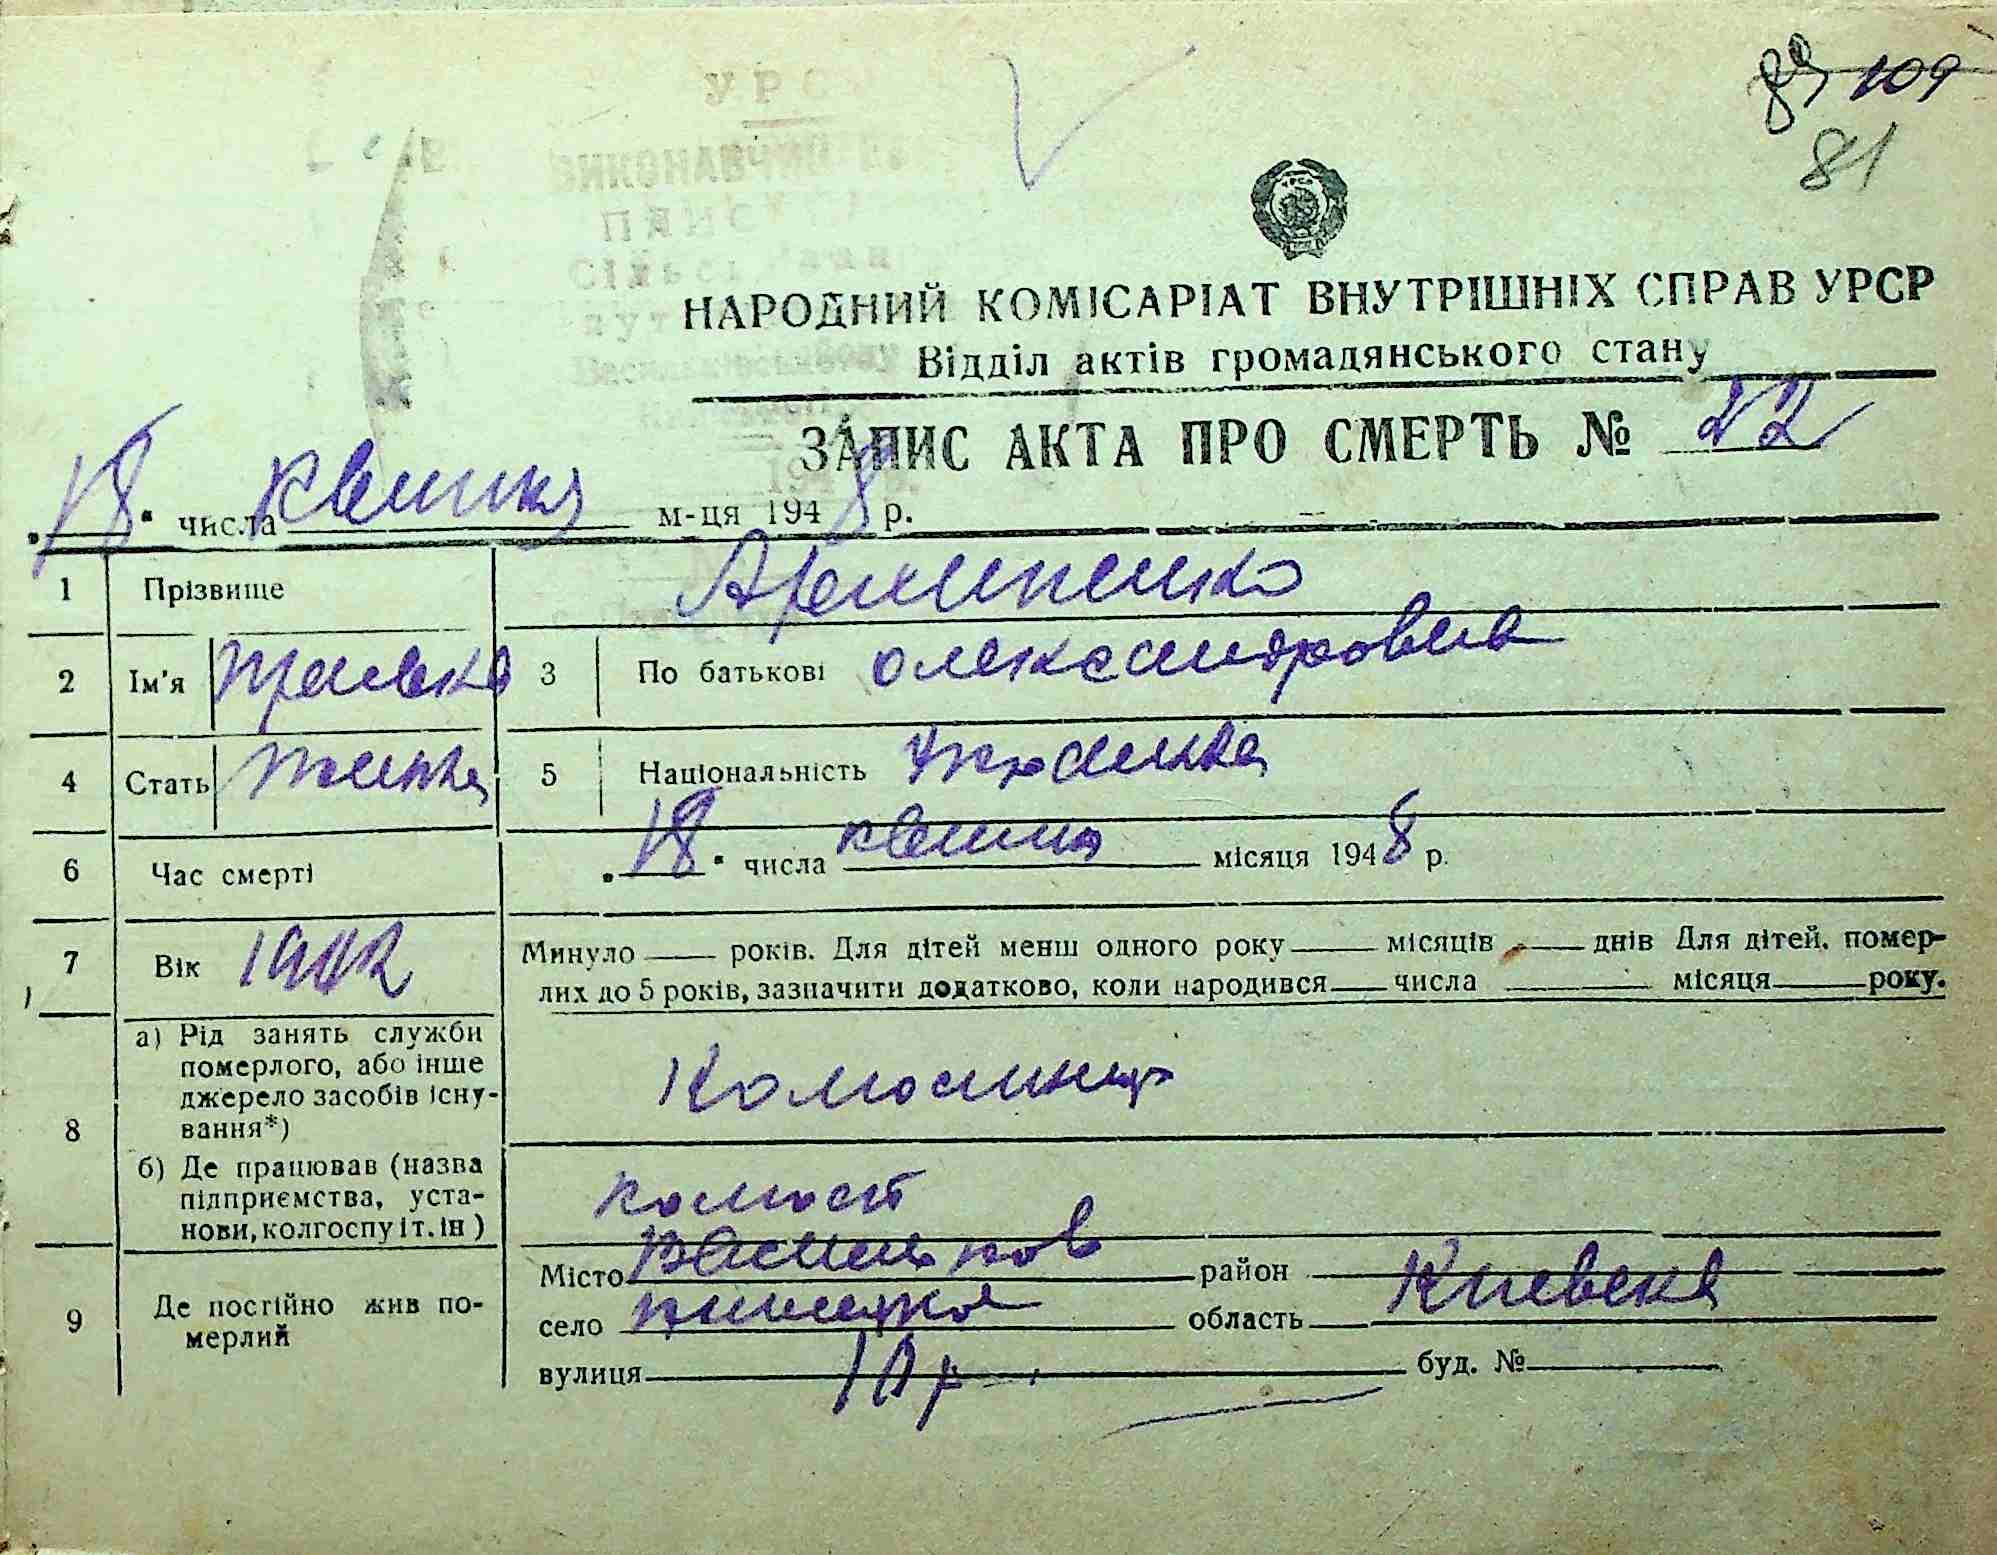 109
81
УРС
ВИКОНАВЧИЙ
НАРОДНИЙ КОМІСАРІАТ ВНУТРІШНІХ СПРАВ УРСР
Відділ актів громадянського стану
ЗАПИС АКТА ПРО СМЕРТЬ №
„18“ числа квитня м-ця 1948 р.
1 Прізвище Архипенко
2 Ім'я 3 По батькові Олександровна
4 Стать жинка 5 Національність Украинка
6 Час смерті „18“ числа квитня місяця 1948 р.
7 Вік 1902 Минуло — років. Для дітей менш одного року — місяців — днів Для дітей, помер-
лих до 5 років, зазначити додатково, коли народився — числа — місяця — року.
8 а) Рід занять служби
померлого, або інше
джерело засобів існу-
вання*)
б) Де працював (назва
підприємства, уста-
нови, колгоспу і т. ін)
9 Де постійно жив по-
мерлий
Місто Васильков район
село область Киевска
вулиця буд. №